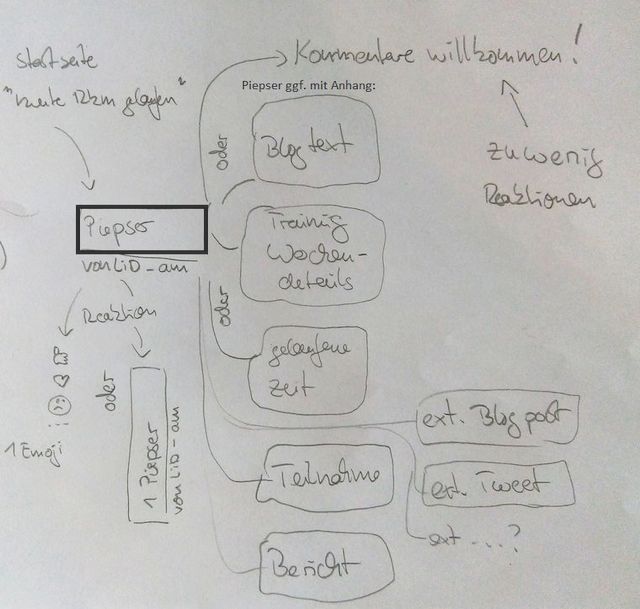 Startseite
"heute 12km gelaufen"
Kommentare willkommen!
Piepser ggf. mit Anhang:
oder
Blogtext
zu wenig
Reaktionen
Piepser
von LiD - am
Training
Wochen-
details
Reaktion
oder
gelaufene
Zeit
oder
1 Emoji
1 Piepser
von LiD - am
ext. Blogpost
Teilnahme
ext. Tweet
ext ....?
Bericht